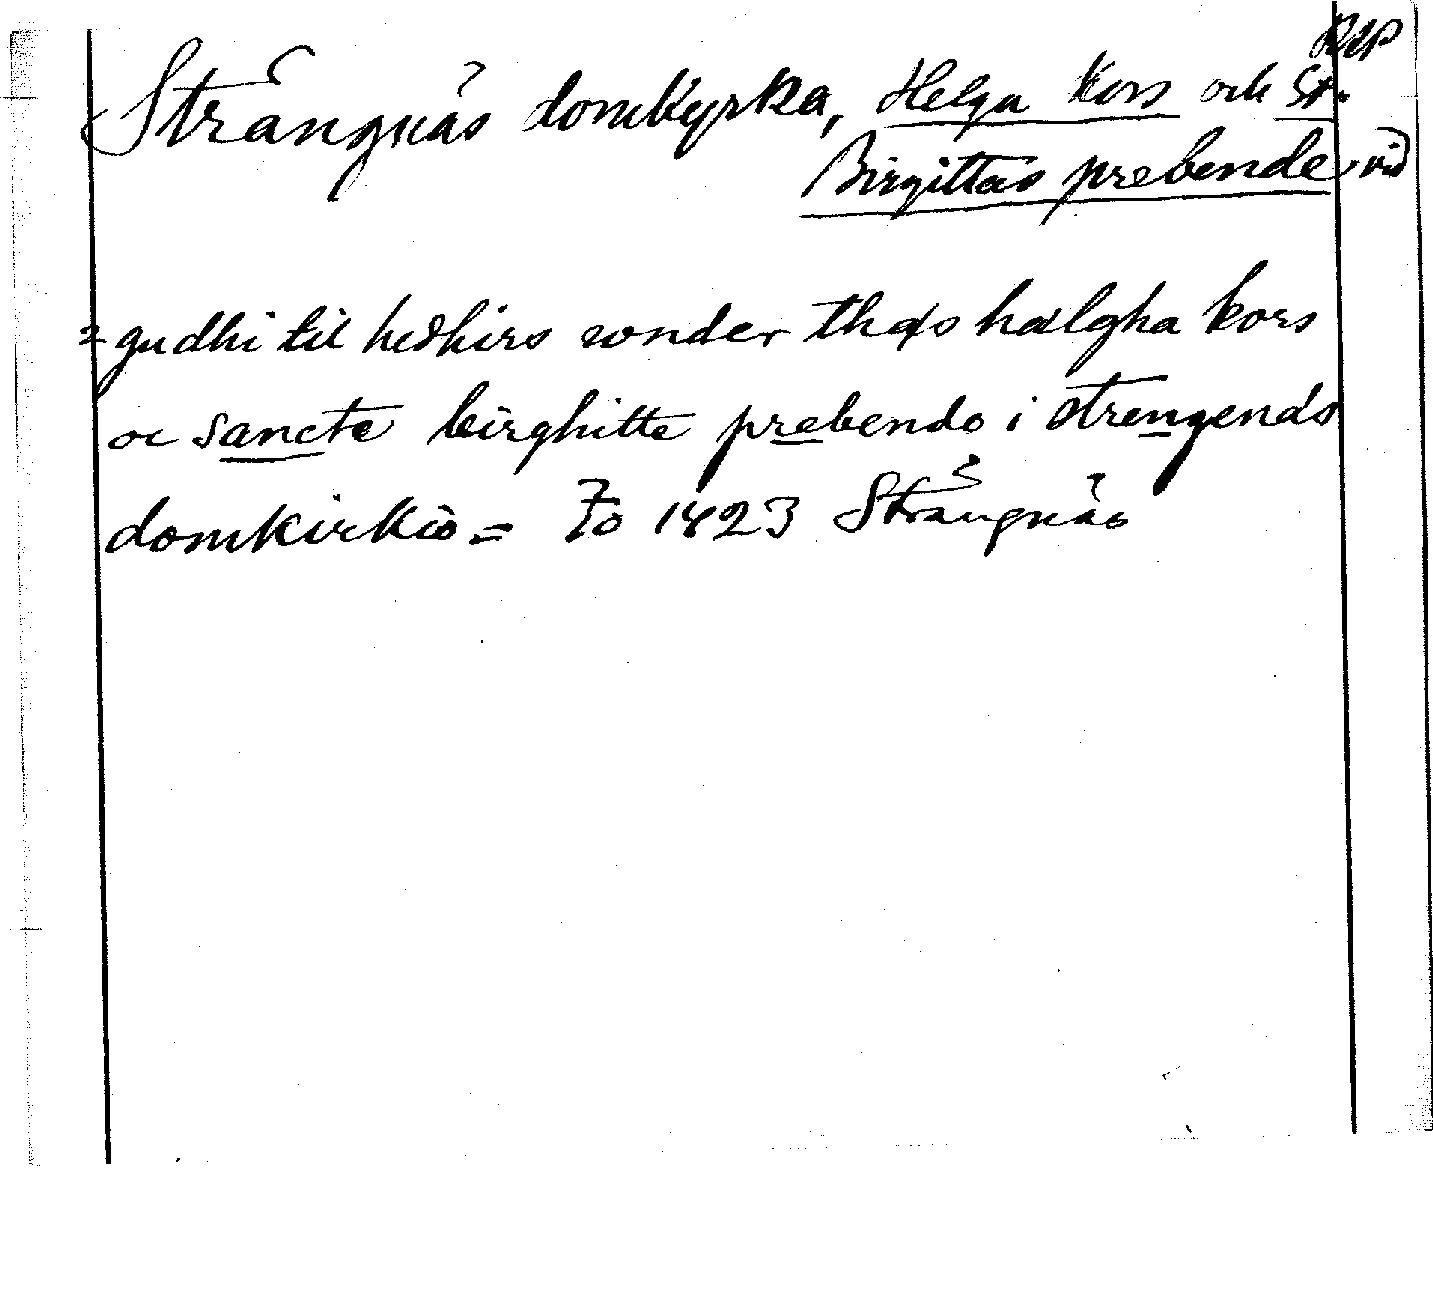 Rep
Strängnäs domkyrka, Helga Kors och St.
Birgittas prebende vid
= gudhi til hedhirs vonder thæs hælgha kors
oc sancte birghitte prebendo i strengends
domkirkio = Fo 1423 Strängnäs